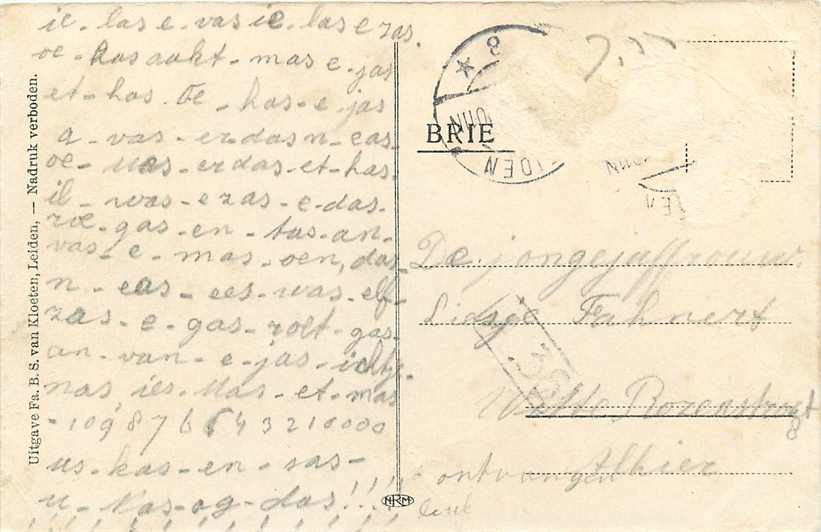 ie. las e. vas ie. las e zas.
oe. kas aakt - mas e. jas
et - has. be - has - e jas
a - vas - er das n - eas
oe - uas - erdas - et - has.
il - was - e zas - e - das.
roe - gas - en - tas - an -
vas - e - mas - oen, das
n - eas - ees - was - elf -
zas - e - gas - roet - gas
an - van - e - jas -
nas, ies - Mas - et - mas
- 109876543210000
us - kas - en - sas -
u - kas - og - das!!!
Uitgave Fa. B. S. van Kloeten, Leiden, — Nadruk verboden.
NRM
8
BRIE
IDEN
De jongejuffrouw
Lidsje Fahnert
Witte Rozenstraat
8
Alhier
ontvangen